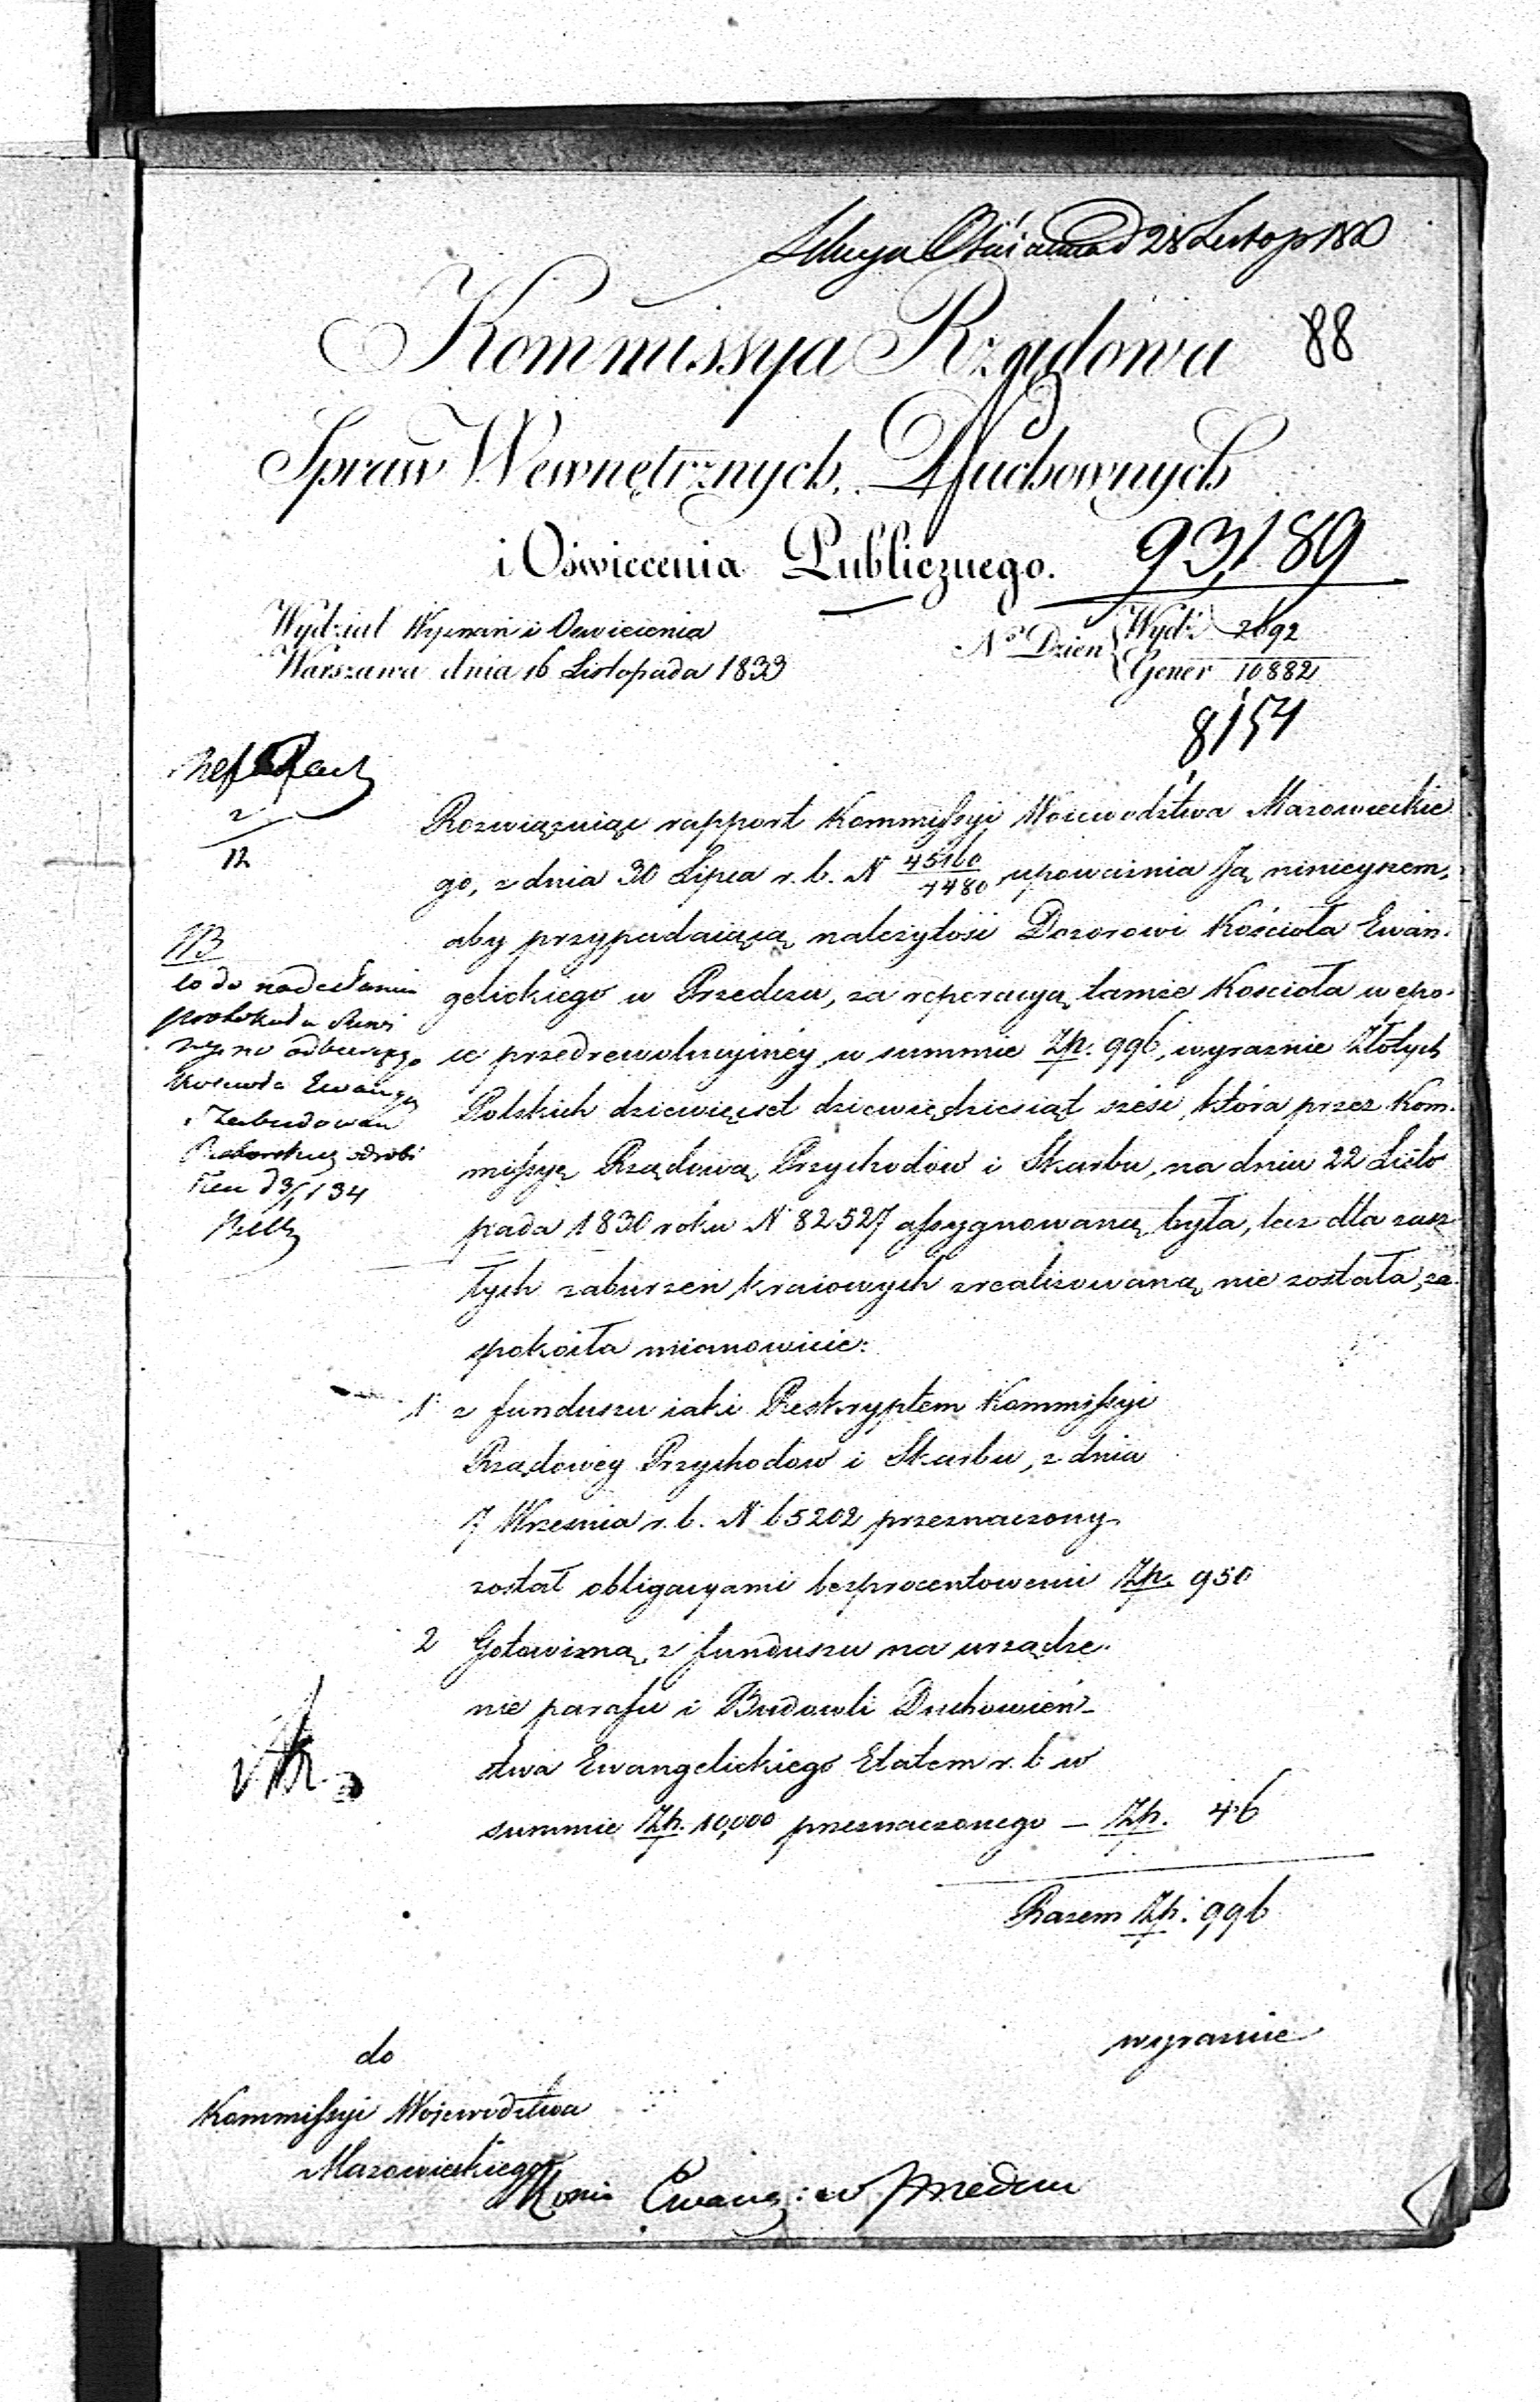 28 Listop 18
Kommissya Rządowa 88
Spraw Wewnętrznych, Duchownych
i Oświecenia Publicznego. 93,189
Wydział Wyznań i Oswiecenia
Warszawa dnia 16 Listopada 1833
No Dzien { Wydz 2692
Gener 10882
8154
2
12
Rozwiązuiąc rapport Kommissyi Woiewództwa Mazowieckie
go, z dnia 30 Lipca r. b. N 45160/7480 upoważnia Ją ninieyszem,
aby przypadaiącą należytość Dozorowi Kościoła Ewan-
gelickiego w Przedczu, za reperacyą tamże Kościoła w epo-
ce przedrewolucyiney, w summie Zp. 996, wyraznie Złotych
Polskich dziewięcset dziewiędziesiąt sześć, która przez Kom-
missyą Rządową Przychodów i Skarbu, na dniu 22 Listo
pada 1830 roku N 82527 assygnowaną była, lecz dla zasz
łych zaburzeń kraiowych zrealizowaną nie została, za-
spokoiła mianowicie:
1 z funduszu iaki Reskryptem Kommissyi
Rządowéy Przychodow i Skarbu, z dnia
7 Wrzesnia r. b. N 65202 przeznaczony
został obligacyami bezprocentowemi Zp. 950
2 Gotowizną z funduszu na urządze-
nie parafii i Budowli Duchowień-
stwa Ewangelickiego Etatem r. b w
summie Zp. 10,000 przeznaczonego – Zp. 46
Razem Zp. 996
wyraznie
NB
co do nadesłania
protokułu
Koscioła Ewang
i Zabudowań
34
do
Kommissyi Województwa
Mazowieckiego
Ewang: w Przedczu